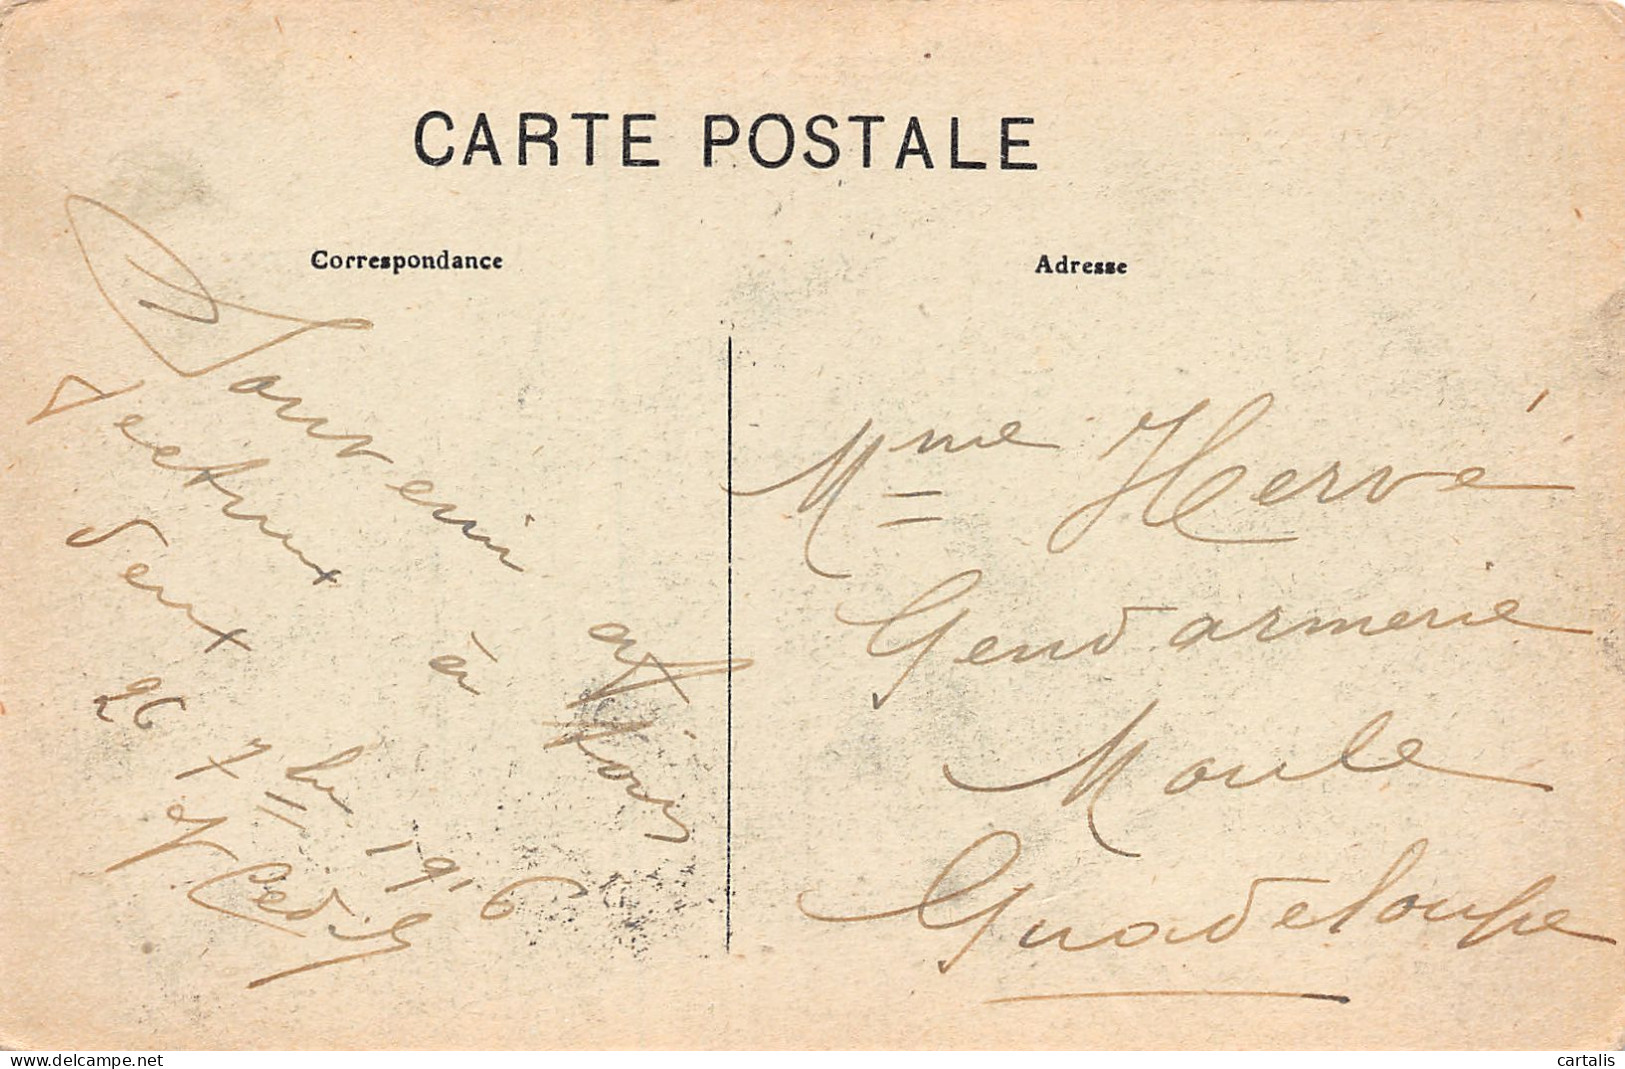 CARTE POSTALE
Correspondance
Souvenir
affectueux à tous
deux
26
7
1916
Adresse
Mme Hervé
Gendarmerie
Moule
Guadeloupe
www.delcampe.net
cartalis